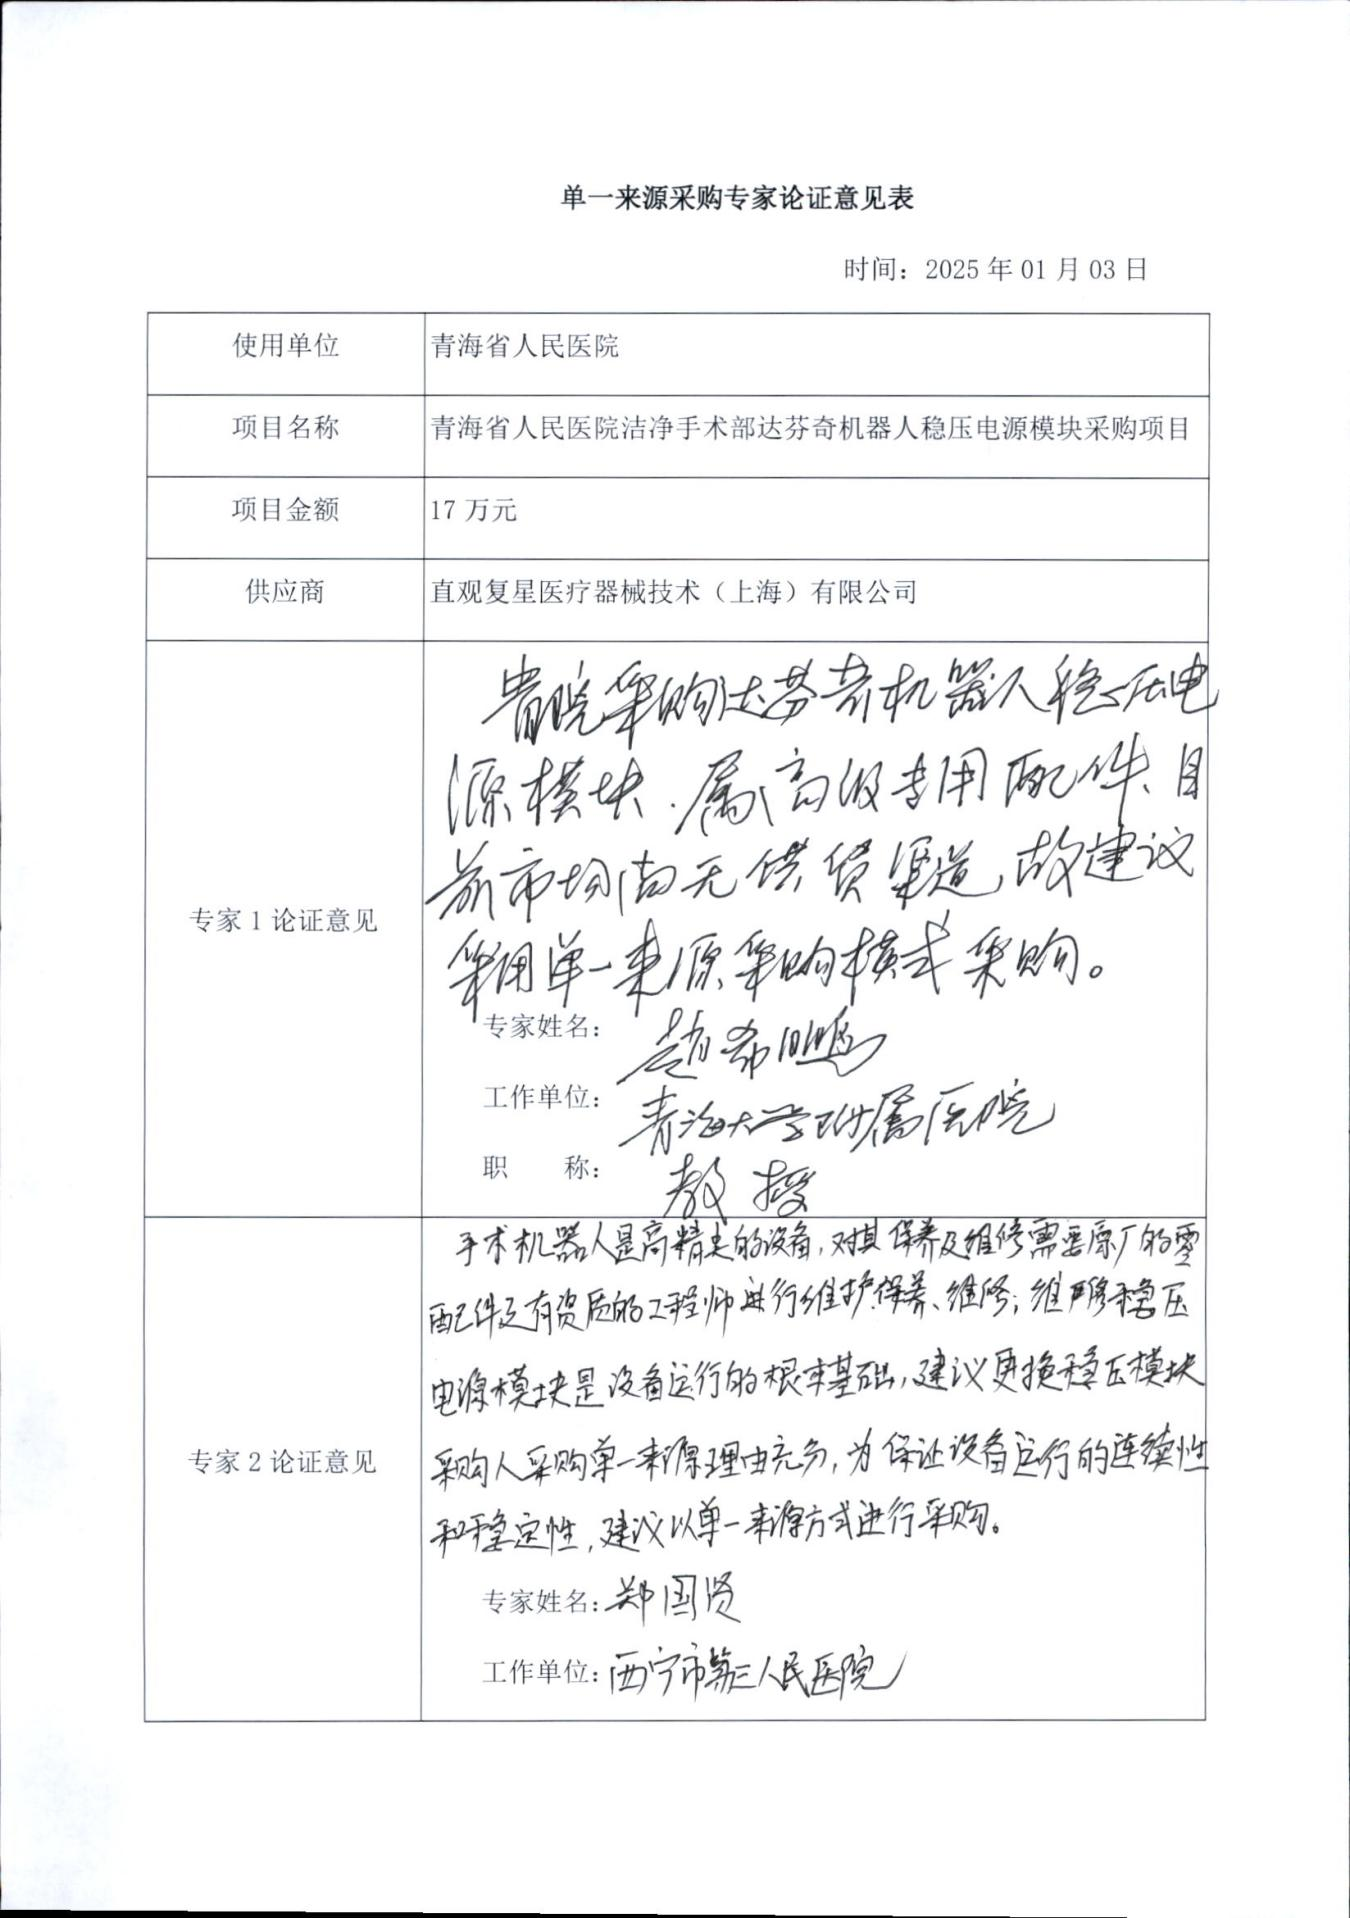 单一来源采购专家论证意见表
时间：2025年01月03日
使用单位
青海省人民医院
项目名称
青海省人民医院洁净手术部达芬奇机器人稳压电源模块采购项目
项目金额
17万元
供应商
直观复星医疗器械技术（上海）有限公司
专家1论证意见
贵院采购达芬奇机器人稳压电
源模块，属高级专用配件、目
前市场尚无供货渠道，故建议
采用单一来源采购模式采购。
专家姓名：赵希鹏
工作单位：青海大学附属医院
职　　称：教授
专家2论证意见
手术机器人是高精尖的设备，对其保养及维修需要原厂的零
配件及有资质的工程师进行维护保养、维修；稳压
电源模块是设备运行的根本基础，建议更换稳压模块
采购人采购单一来源理由充分，为保证设备运行的连续性
和稳定性，建议以单一来源方式进行采购。
专家姓名：郑国贤
工作单位：西宁市第三人民医院